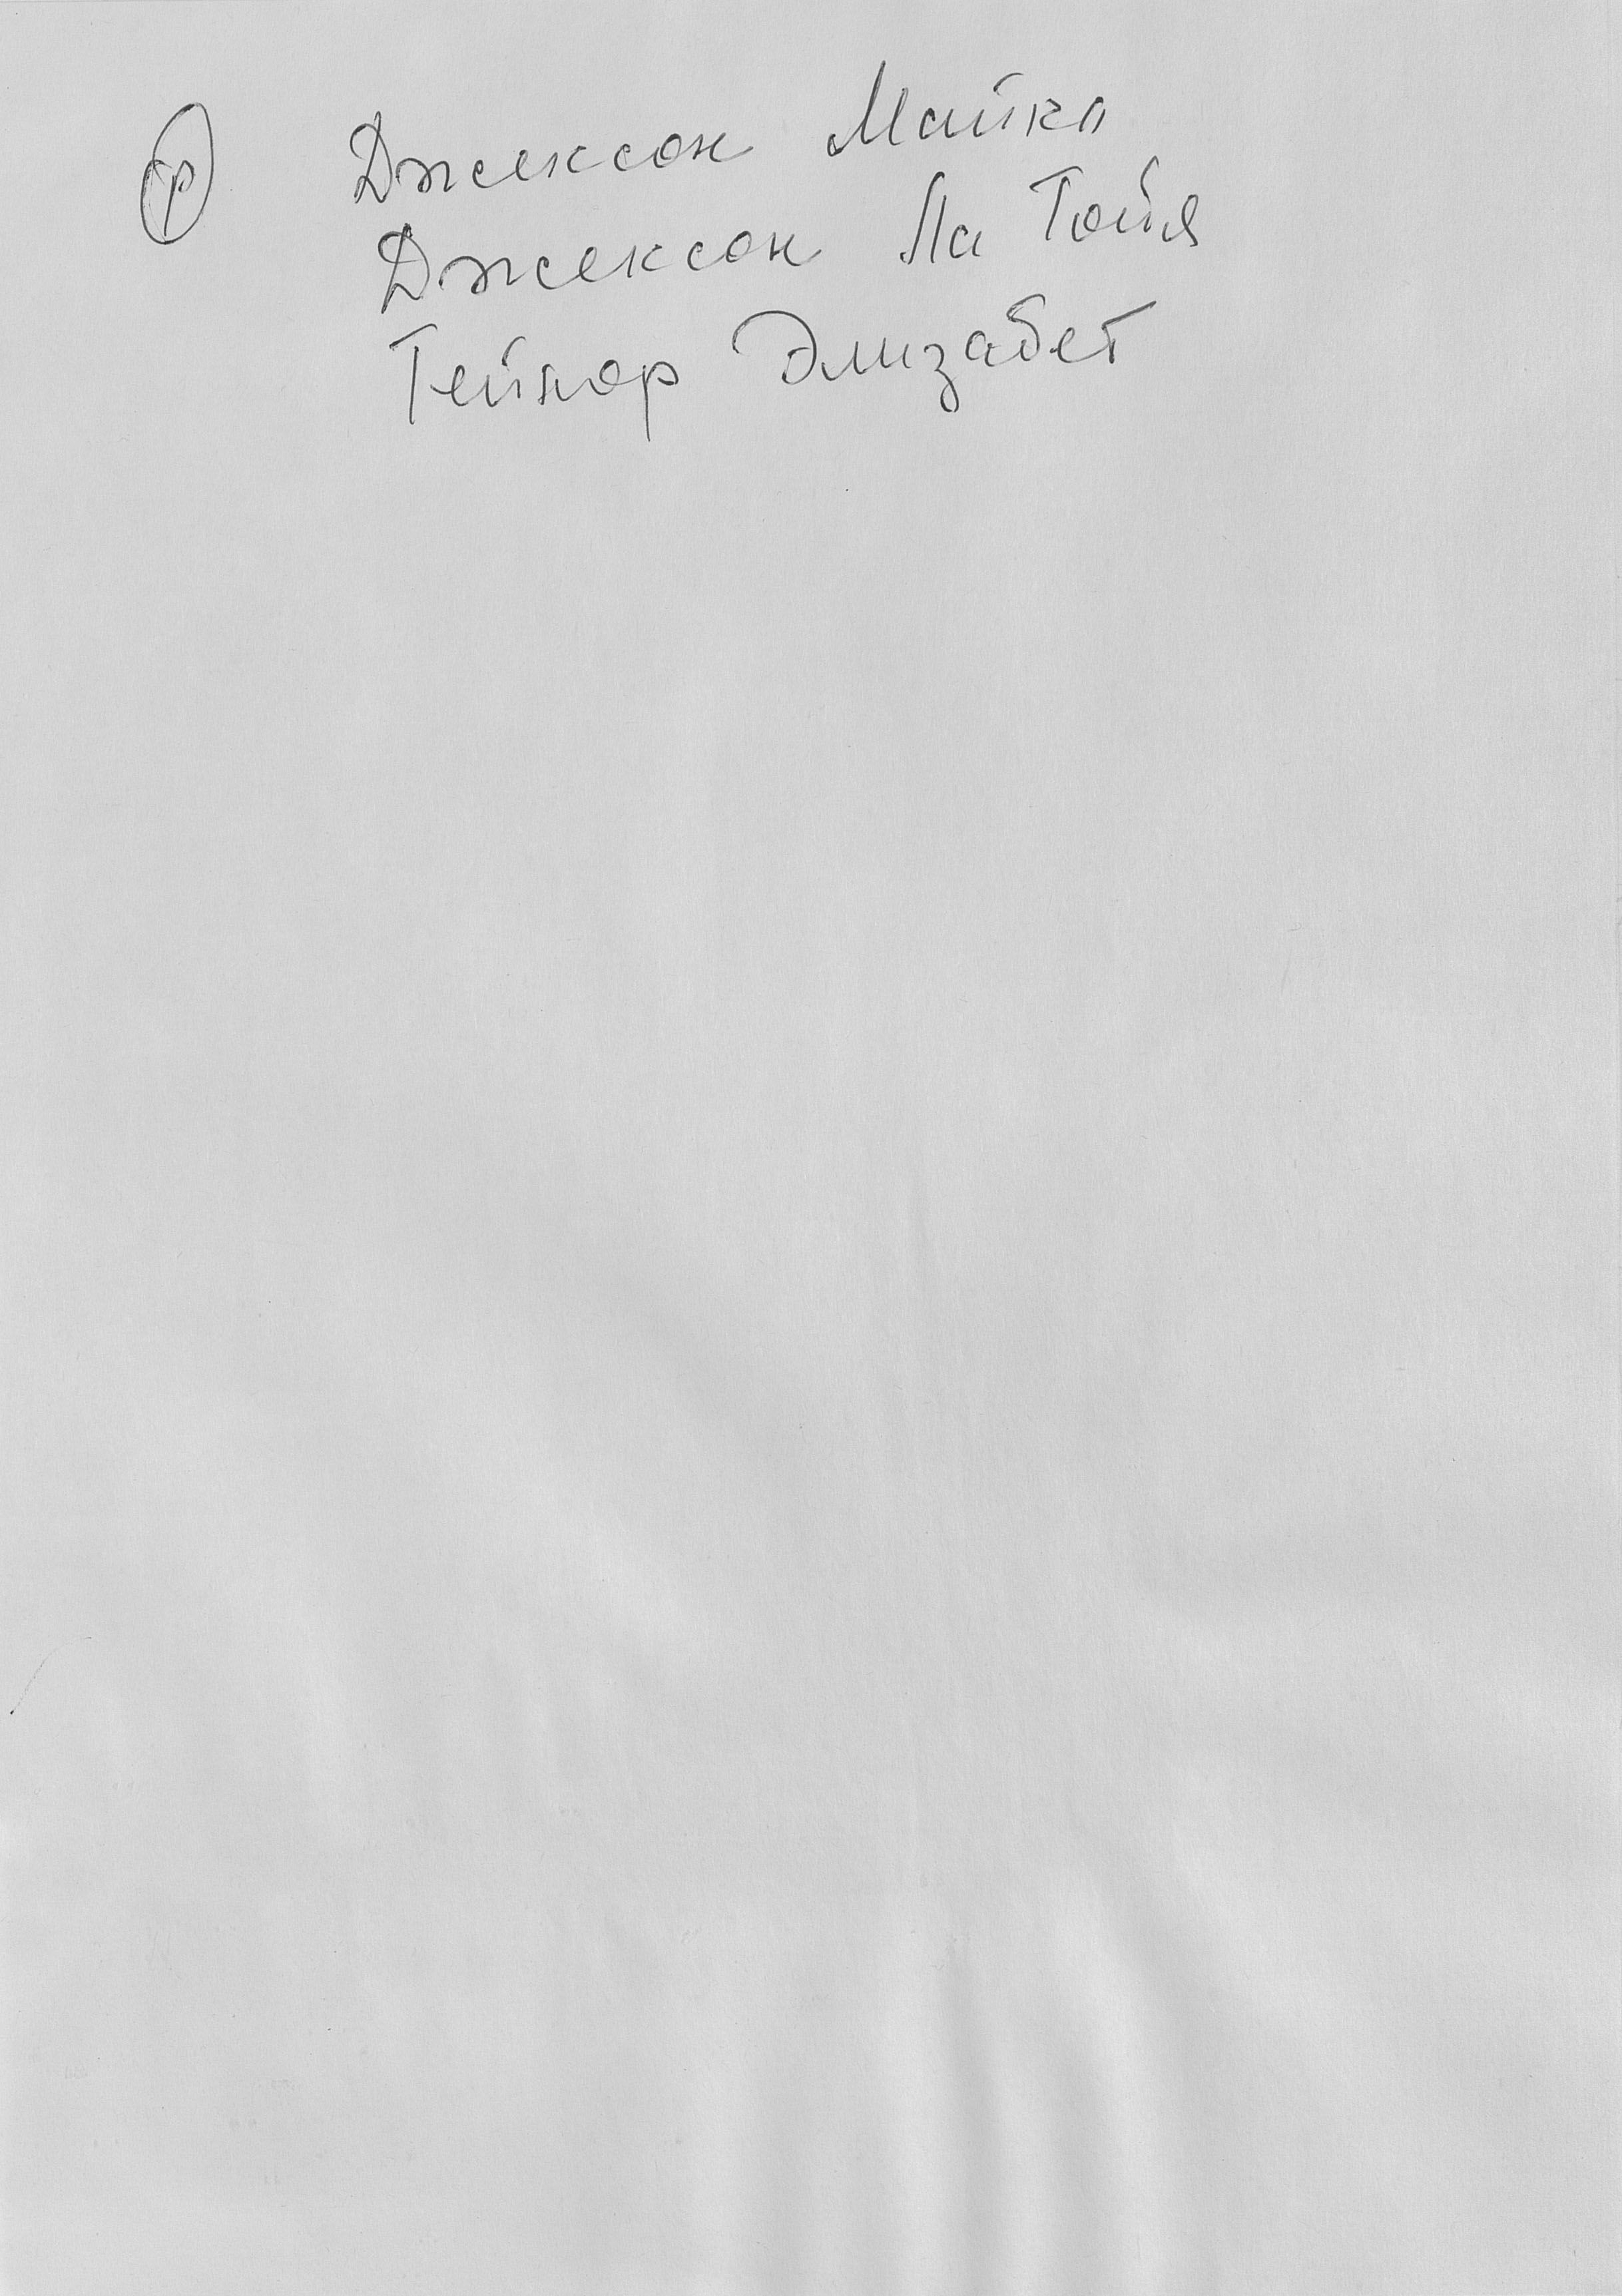 ф Джексон Майкл
Джексон Ла Тойя
Тейлор Элизабет